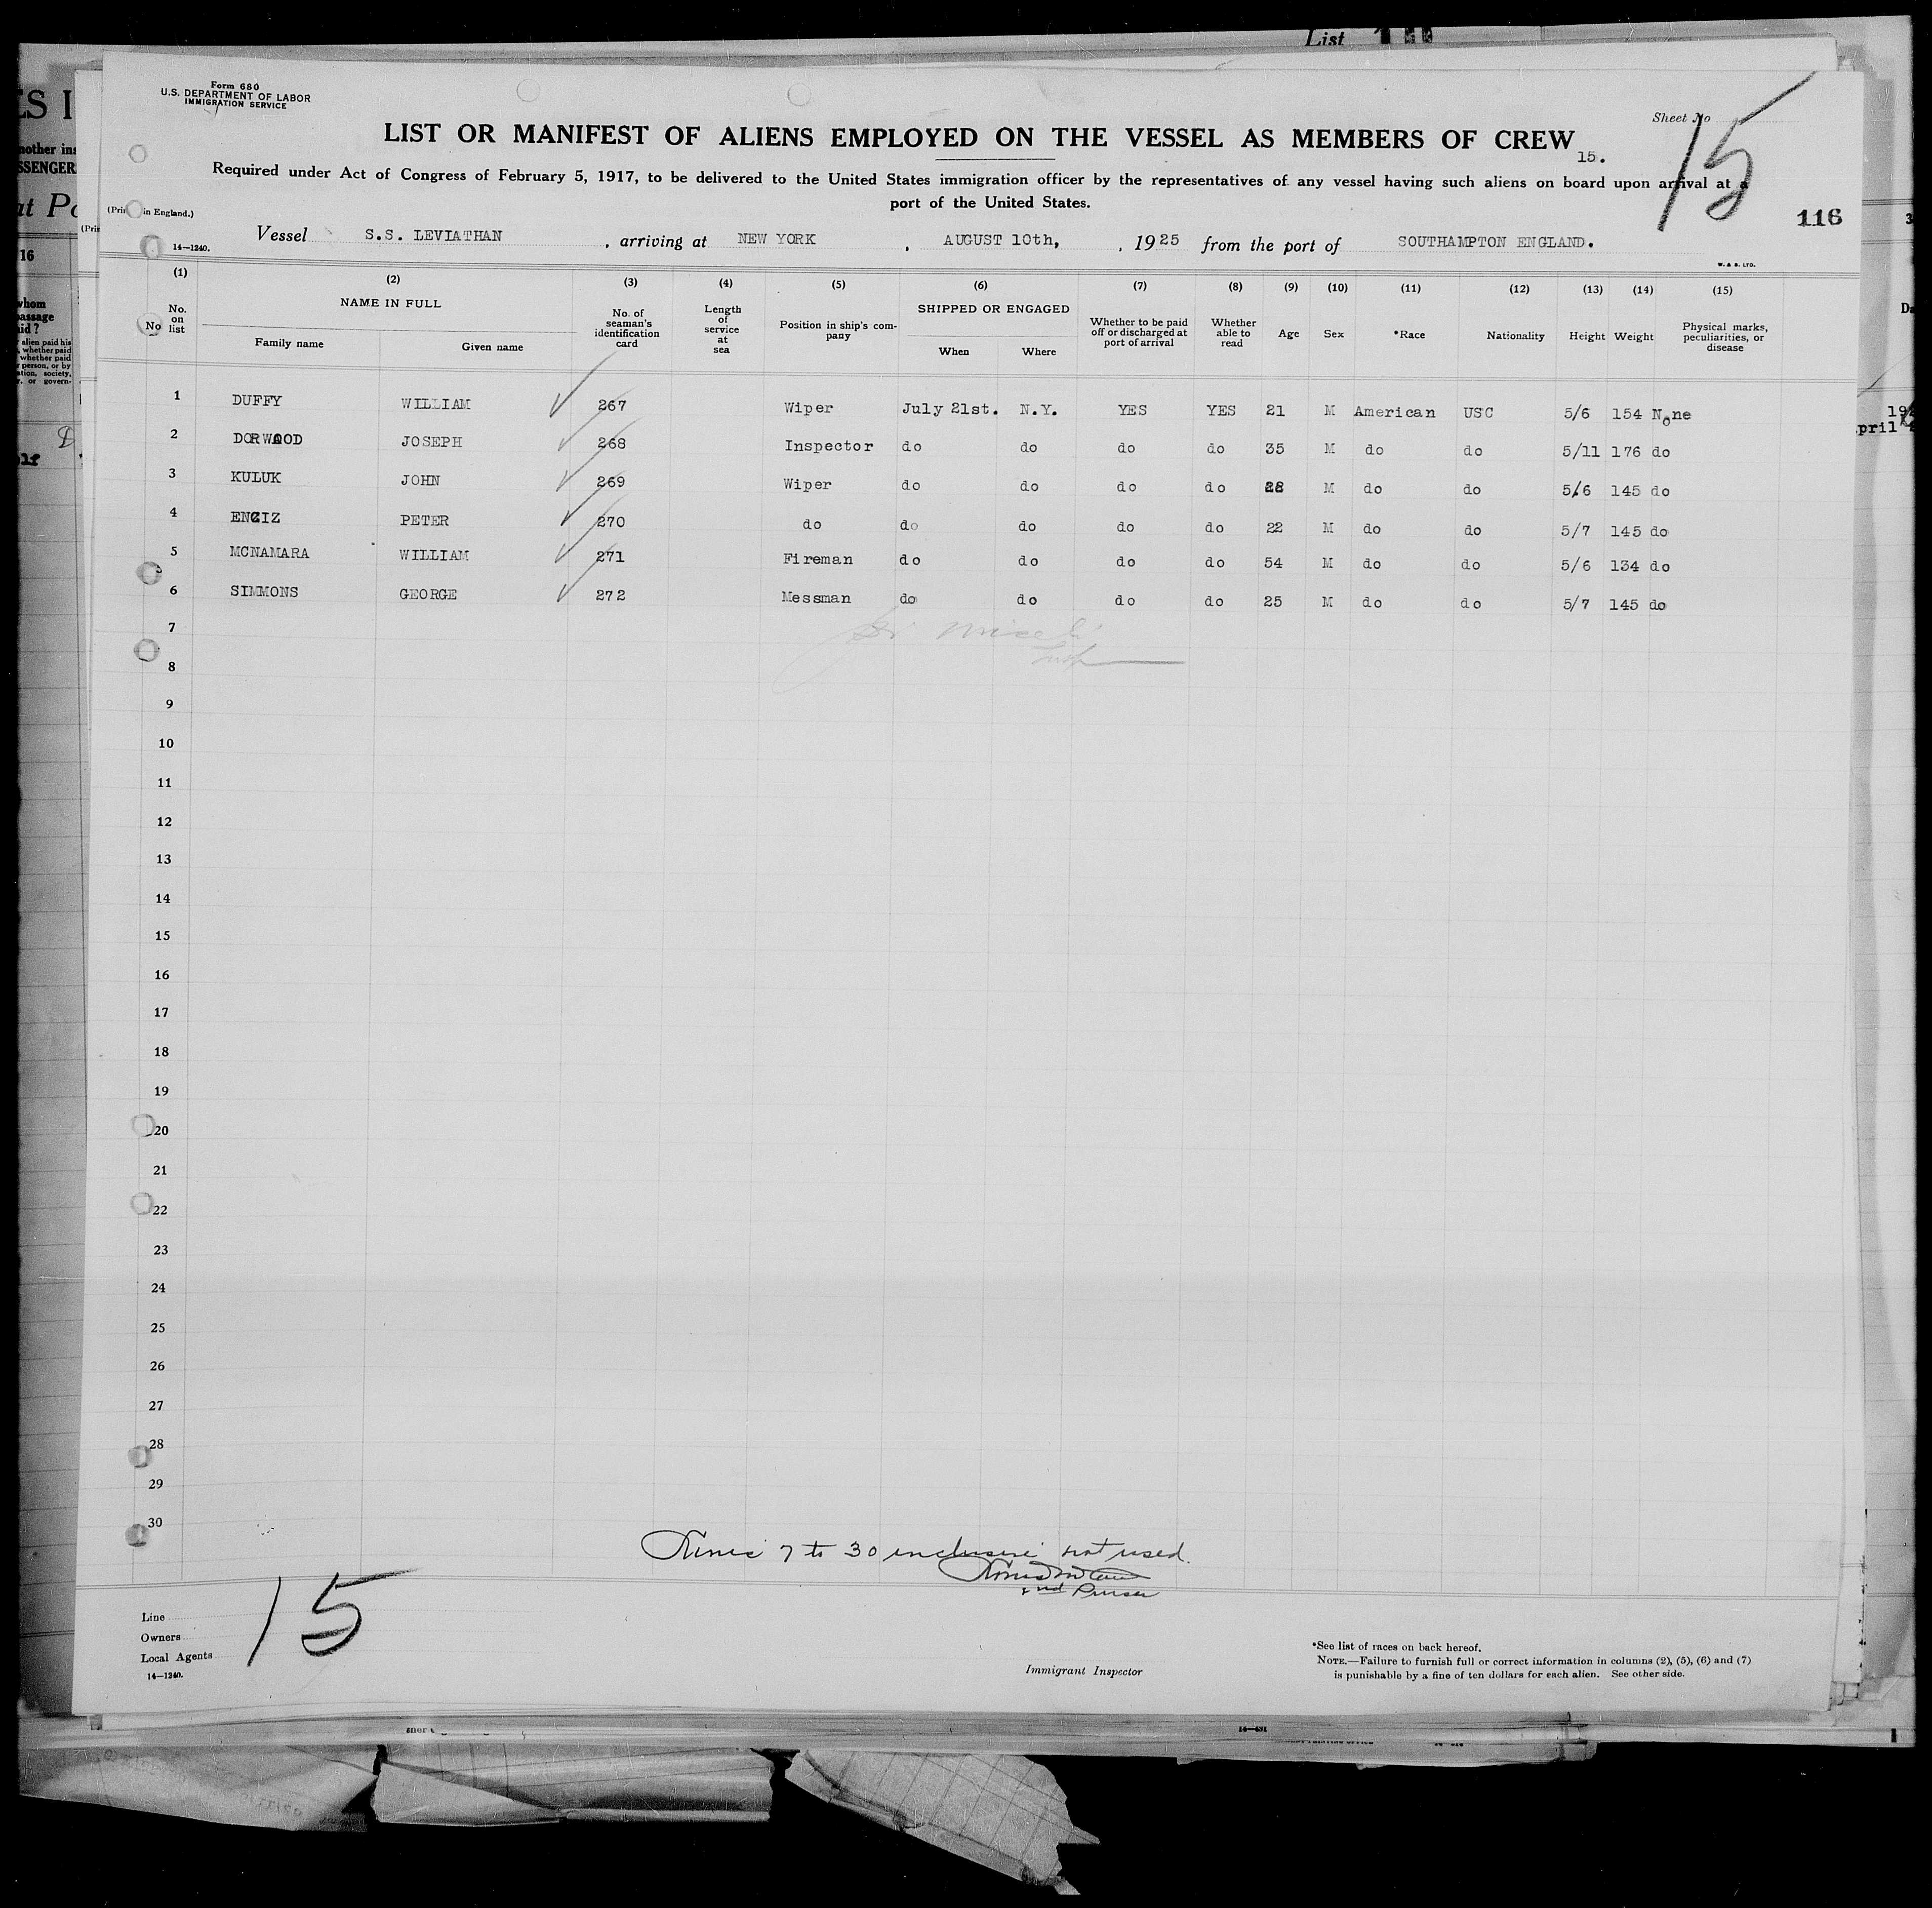 List
Form 680
U.S. DEPARTMENT OF LABOR
IMMIGRATION SERVICE
Sheet No
15
LIST OR MANIFEST OF ALIENS EMPLOYED ON THE VESSEL AS MEMBERS OF CREW
15.
Required under Act of Congress of February 5, 1917, to be delivered to the United States immigration officer by the representatives of any vessel having such aliens on board upon arrival at a
port of the United States.
in England.)
116
14—1240.
Vessel S.S. LEVIATHAN, arriving at NEW YORK, AUGUST 10th, , 1925 from the port of SOUTHAMPTON ENGLAND.
W. & S. LTD.
(1) (2) (3) (4) (5) (6) (7) (8) (9) (10) (11) (12) (13) (14) (15)
No No. on list NAME IN FULL Family name Given name No. of seaman's identification card Length of service at sea Position in ship's company SHIPPED OR ENGAGED When Where Whether to be paid off or discharged at port of arrival Whether able to read Age Sex *Race Nationality Height Weight Physical marks, peculiarities, or disease
1 DUFFY WILLIAM 267 Wiper July 21st. N.Y. YES YES 21 M American USC 5/6 154 None
2 DORWOOD JOSEPH 268 Inspector do do do do 35 M do do 5/11 176 do
3 KULUK JOHN 269 Wiper do do do do 28 M do do 5/6 145 do
4 PETER 270 do do do do do 22 M do do 5/7 145 do
5 MCNAMARA WILLIAM 271 Fireman do do do do 54 M do do 5/6 134 do
6 SIMMONS GEORGE 272 Messman do do do do 25 M do do 5/7 145 do
7
8
9
10
11
12
13
14
15
16
17
18
19
20
21
22
23
24
25
26
27
28
29
30
Lines 7 to 30 inclusive not used.
2nd Purser
15
Line
Owners
Local Agents
14—1240.
Immigrant Inspector
*See list of races on back hereof.
NOTE.—Failure to furnish full or correct information in columns (2), (5), (6) and (7)
is punishable by a fine of ten dollars for each alien. See other side.